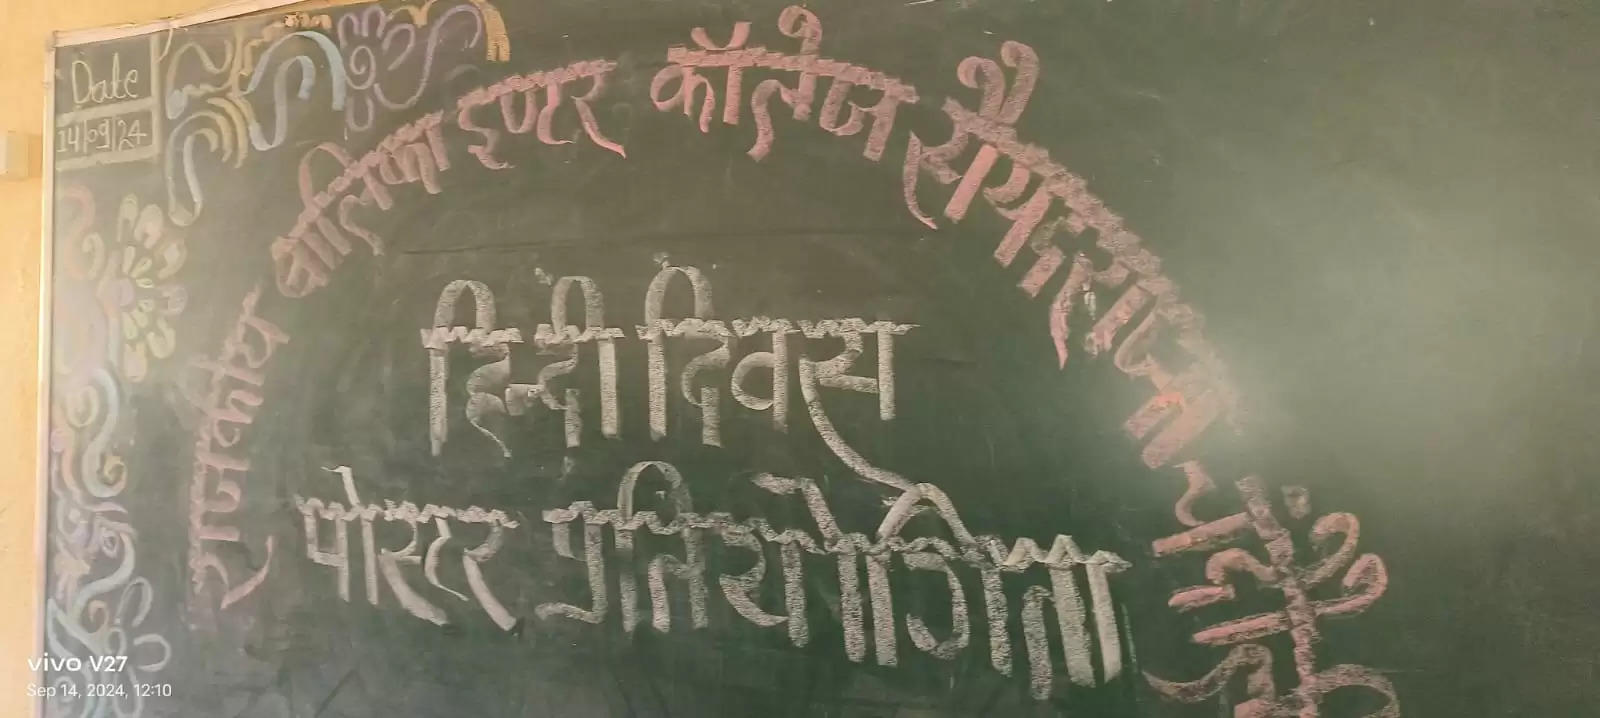 Date
14/09/24
राजकीय बालिका इण्टर कॉलेज सैयदराजा
हिन्दी दिवस
पोस्टर प्रतियोगिता
vivo V27
Sep 14, 2024, 12:10